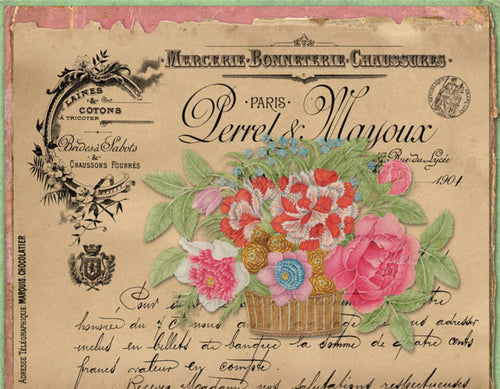 MERCERIE·BONNETERIE·CHAUSSURES
LAINES
&
COTONS
À TRICOTER
·PARIS·
Perrel & Mayoux
Brides à Sabots
&
CHAUSSONS FOURRÉS
Rue du Lycée
1904
ADRESSE TÉLÉGRAPHIQUE MARQUIS. CHOCOLATIER
Pour
honorée du 7 Ct nous adresser
inclus en billets de banque la somme de quatre cents
francs valeur en compte.
Recevez Madame nos salutations respectueuses